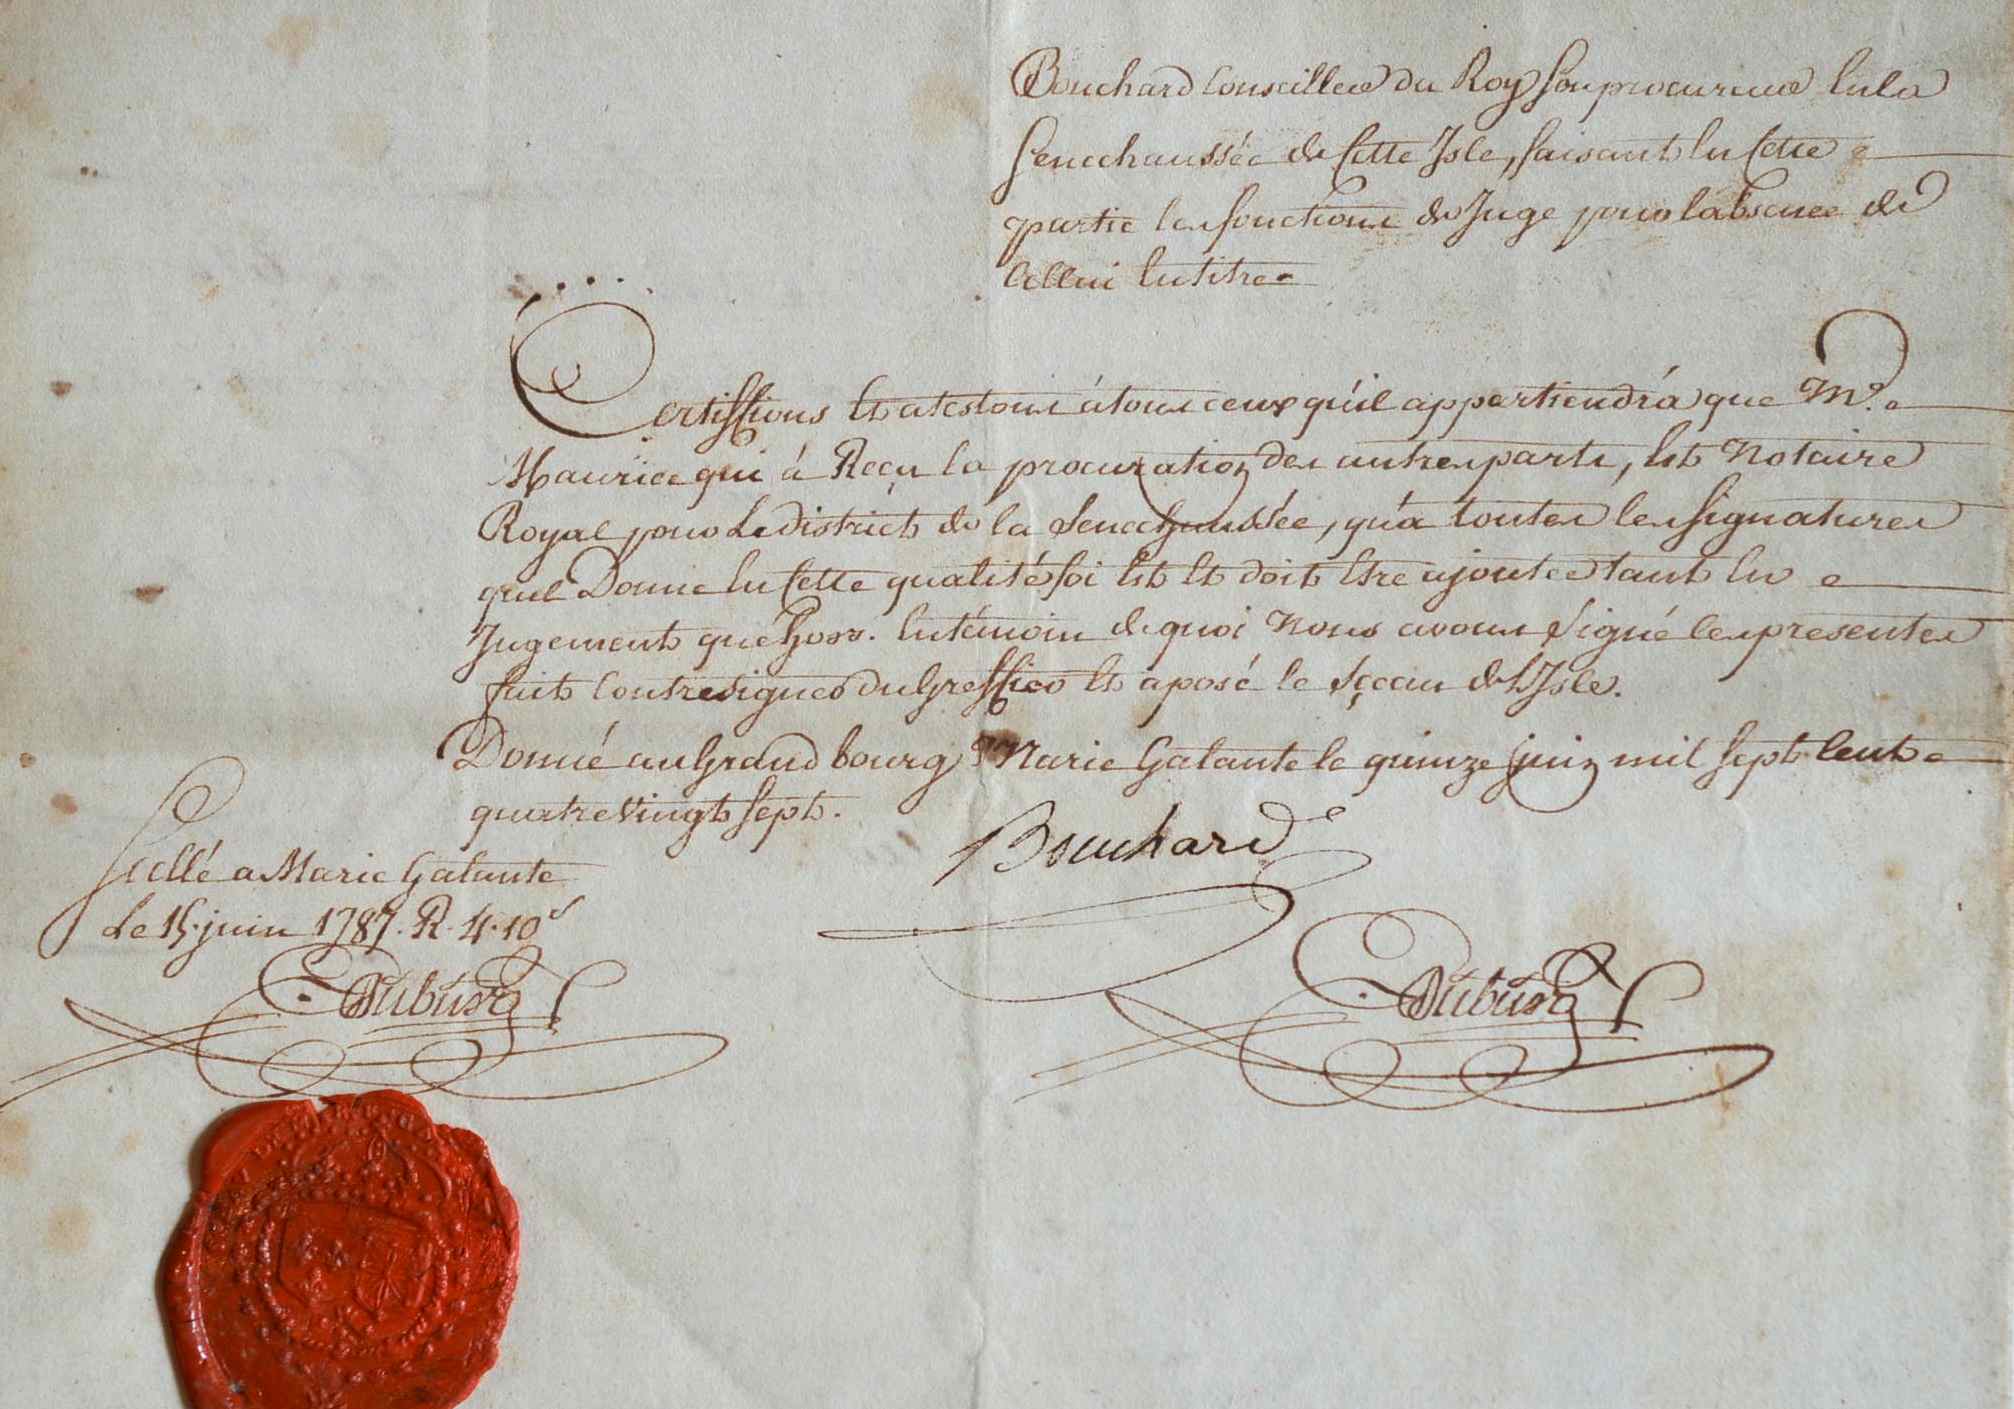 Bouchard Conseiller du Roy son procureur En la
Senechaussée de Cette Isle, faisant En Cette
partie les fonctions de Juge pour l'absence de
Cellui En titre
Certiffions Et atestons à tous ceux qu'il appartiendrá que Me.
Maurice qui à Reçu la procuration des autres parts, Est Notaire
Royal pour Le district de la Senechaussée, qu'a toutes les signatures
quil Donne En Cette qualité foi Est Et doit Etre ajoutée tant En
Jugement que hors. En témoin de quoi Nous avons signé les presentes
fait Contresigner du Greffier Et aposé le sçeau de L'Isle.
Donné au Grand bourg Marie Galante le quinze juin mil sept Cent
quatre Vingt sept.
Bouchard
Scellé a Marie Galante
Le 15. juin 1787. R. 4. 10s
Dubourg
Dubourg